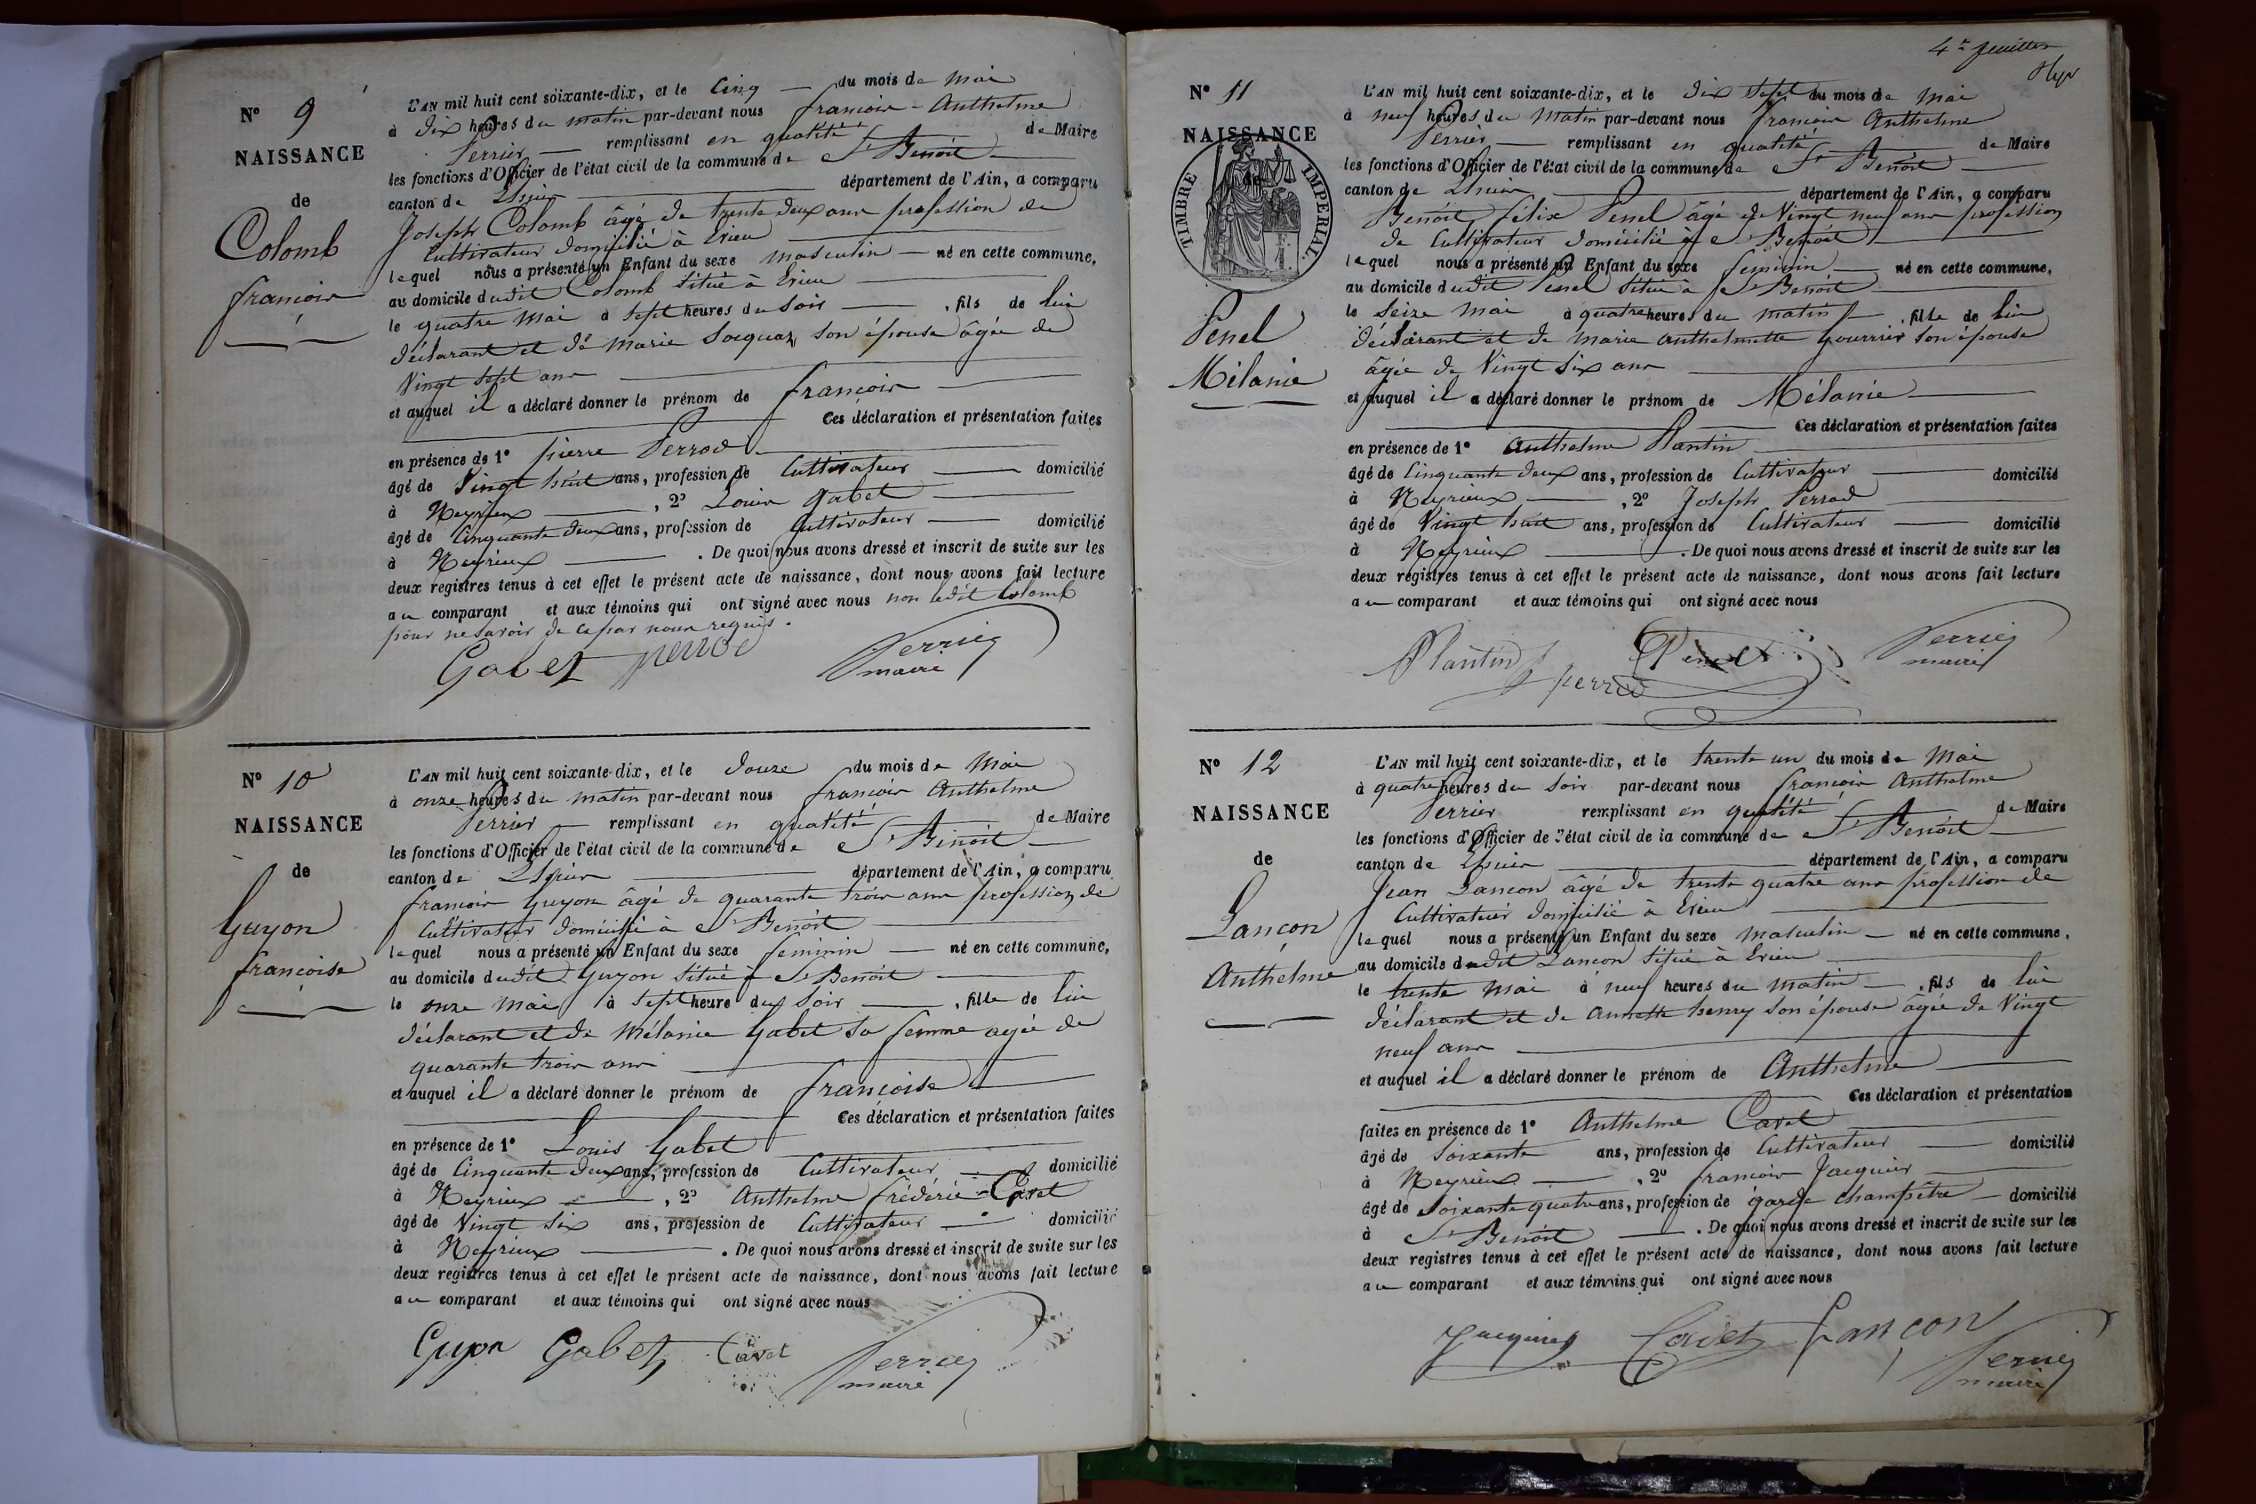 N° 9
NAISSANCE
de
Colomb
françois
L'AN mil huit cent soixante-dix, et le Cinq du mois de Mai
à Dix heures du matin par-devant nous françois Anthelme
Perrier remplissant en qualité de Maire
les fonctions d'Officier de l'état civil de la commune de St Benoit
canton de Lhuis département de l'Ain, a comparu
Joseph Colomb âgé de trente deux ans profession de
Cultivateur domicilié à Erieu
lequel nous a présenté un Enfant du sexe masculin né en cette commune,
au domicile dudit Colomb situé à Erieu
le quatre Mai à Sept heures du soir , fils de lui
déclarant et de Marie Socquaz son épouse âgée de
Vingt Sept ans
et auquel il a déclaré donner le prénom de françois
Ces déclaration et présentation faites
en présence de 1° pierre Perrod
âgé de Vingt huit ans, profession de Cultivateur domicilié
à Neyrieux , 2° Louis Gabet
âgé de Cinquante deux ans, profession de Cultivateur domicilié
à Neyrieux . De quoi nous avons dressé et inscrit de suite sur les
deux registres tenus à cet effet le présent acte de naissance, dont nous avons fait lecture
au comparant et aux témoins qui ont signé avec nous non ledit Colomb
pour ne savoir de ce par nous requis.
Gabet perrod Perrier
maire
N° 10
NAISSANCE
de
Guyon
françoise
L'AN mil huit cent soixante-dix, et le douze du mois de Mai
à onze heures du matin par-devant nous françois Anthelme
Perrier remplissant en qualité de Maire
les fonctions d'Officier de l'état civil de la commune de St Benoit
canton de Lhuis département de l'Ain, a comparu
françois Guyon âgé de quarante trois ans profession de
Cultivateur domicilié à St Benoit
lequel nous a présenté un Enfant du sexe feminin né en cette commune,
au domicile dudit Guyon situé à St Benoit
le onze Mai à Sept heure du Soir , fille de lui
déclarant et de Mélanie Gabet sa femme agée de
quarante trois ans
et auquel il a déclaré donner le prénom de françoise
Ces déclaration et présentation faites
en présence de 1° Louis Gabet
âgé de Cinquante deux ans, profession de Cultivateur domicilié
à Neyrieux , 2° Anthelme frédéric Cavet
âgé de Vingt Six ans, profession de Cultivateur domicilié
à Neyrieux . De quoi nous avons dressé et inscrit de suite sur les
deux registres tenus à cet effet le présent acte de naissance, dont nous avons fait lecture
au comparant et aux témoins qui ont signé avec nous
Guyon Gabet Cavet Perrier
maire
4e feuillet
N° 11
NAISSANCE
TIMBRE IMPERIAL
Penel
Mélanie
L'AN mil huit cent soixante-dix, et le Dix Sept du mois de Mai
à neuf heures du Matin par-devant nous françois Anthelme
Perrier remplissant en qualité de Maire
les fonctions d'Officier de l'état civil de la commune de St Benoit
canton de Lhuis département de l'Ain, a comparu
Benoit félix Penel âgé de Vingt neuf ans profession
de Cultivateur domicilié à St Benoit
lequel nous a présenté un Enfant du sexe feminin né en cette commune,
au domicile dudit Penel situé à St Benoit
le Seize Mai à quatre heures du matin , fille de lui
déclarant et de Marie Anthelmette Gourrier son épouse
âgée de Vingt Six ans
et auquel il a déclaré donner le prénom de Mélanie
Ces déclaration et présentation faites
en présence de 1° Anthelme Plantin
âgé de Cinquante deux ans, profession de Cultivateur domicilié
à Neyrieux , 2° Joseph Perrod
âgé de Vingt huit ans, profession de Cultivateur domicilié
à Neyrieux . De quoi nous avons dressé et inscrit de suite sur les
deux registres tenus à cet effet le présent acte de naissance, dont nous avons fait lecture
au comparant et aux témoins qui ont signé avec nous
Plantin perrod Penel Perrier
maire
N° 12
NAISSANCE
de
Lançon
Anthelme
L'AN mil huit cent soixante-dix, et le trente un du mois de Mai
à quatre heures du Soir par-devant nous françois Anthelme
Perrier remplissant en qualité de Maire
les fonctions d'Officier de l'état civil de la commune de St Benoit
canton de Lhuis département de l'Ain, a comparu
Jean Lançon âgé de trente quatre ans profession de
Cultivateur domicilié à Erieu
lequel nous a présenté un Enfant du sexe masculin né en cette commune,
au domicile dudit Lançon situé à Erieu
le trente Mai à neuf heures du matin , fils de lui
déclarant et de Annette henry son épouse âgée de Vingt
neuf ans
et auquel il a déclaré donner le prénom de Anthelme
Ces déclaration et présentation
faites en présence de 1° Anthelme Cavet
âgé de Soixante ans, profession de Cultivateur domicilié
à Neyrieux , 2° françois Jacquier
âgé de Soixante quatre ans, profession de garde champêtre domicilié
à St Benoit . De quoi nous avons dressé et inscrit de suite sur les
deux registres tenus à cet effet le présent acte de naissance, dont nous avons fait lecture
au comparant et aux témoins qui ont signé avec nous
Jacquier Cavet Lançon Perrier
maire